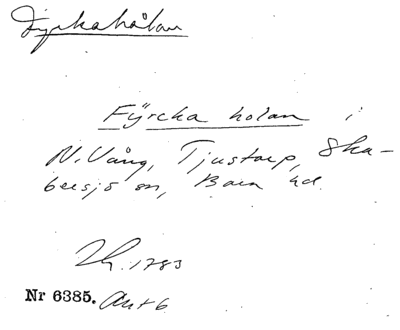 Fyrkahålan
Fÿrcka holan i
N. Vång, Tjustorp, Ska-
bersjö sn, Bara hd.
Lh. 1783
Nr 6385. Akt 6